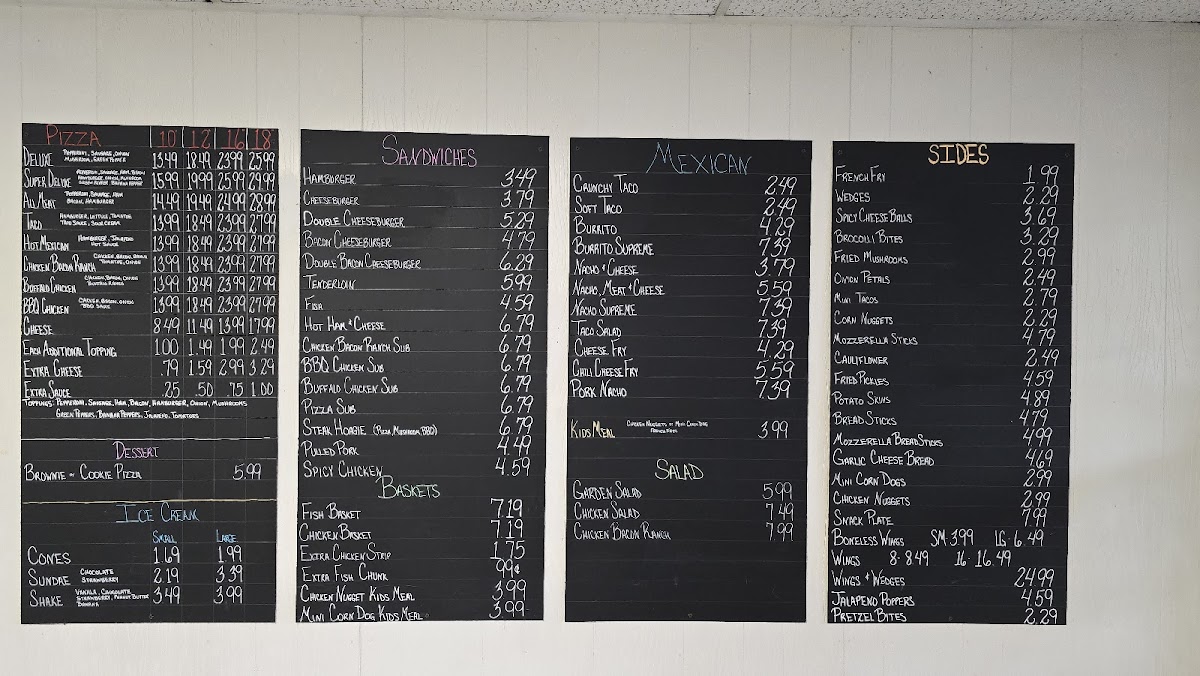 PIZZA 10" 12" 16" 18"
DELUXE PEPPERONI, SAUSAGE, ONION 13.49 18.49 23.99 25.99
MUSHROOM, GREEN PEPPER
SUPER DELUXE PEPPERONI, SAUSAGE, HAM, BACON 15.99 19.99 25.99 29.99
HAMBURGER, ONION, MUSHROOM
GREEN PEPPER, BANANA PEPPER
ALL MEAT PEPPERONI, SAUSAGE, HAM 14.49 19.49 24.99 28.99
BACON, HAMBURGER
TACO HAMBURGER, LETTUCE, TOMATOE 13.99 18.49 23.99 27.99
TACO SAUCE, SOUR CREAM
HOT MEXICAN HAMBURGER, JALAPENO 13.99 18.49 23.99 27.99
HOT SAUCE
CHICKEN BACON RANCH CHICKEN, BACON, RANCH 13.99 18.49 23.99 27.99
TOMATOE, ONION
BUFFALO CHICKEN CHICKEN, BACON, ONION 13.99 18.49 23.99 27.99
BUFFALO RANCH
BBQ CHICKEN CHICKEN, BACON, ONION 13.99 18.49 23.99 27.99
BBQ SAUCE
CHEESE 8.49 11.49 13.99 17.99
EACH ADDITIONAL TOPPING 1.00 1.49 1.99 2.49
EXTRA CHEESE .79 1.59 2.99 3.29
EXTRA SAUCE .25 .50 .75 1.00
TOPPINGS: PEPPERONI, SAUSAGE, HAM, BACON, HAMBURGER, ONION, MUSHROOMS
GREEN PEPPERS, BANANA PEPPERS, JALAPENO, TOMATOES
DESSERT
BROWNIE or COOKIE PIZZA 5.99
ICE CREAM
SMALL LARGE
CONES 1.69 1.99
SUNDAE CHOCOLATE 2.19 3.39
STRAWBERRY
SHAKE VANILA, CHOCOLATE 3.49 3.99
STRAWBERRY, PEANUT BUTTER
BANANA
SANDWICHES
HAMBURGER 3.49
CHEESEBURGER 3.79
DOUBLE CHEESEBURGER 5.29
BACON CHEESEBURGER 4.79
DOUBLE BACON CHEESEBURGER 6.29
TENDERLOIN 5.99
FISH 4.59
HOT HAM & CHEESE 6.79
CHICKEN BACON RANCH SUB 6.79
BBQ CHICKEN SUB 6.79
BUFFALO CHICKEN SUB 6.79
PIZZA SUB 6.79
STEAK HOAGIE (PIZZA, MUSHROOM, BBQ) 6.79
PULLED PORK 4.49
SPICY CHICKEN 4.59
BASKETS
FISH BASKET 7.19
CHICKEN BASKET 7.19
EXTRA CHICKEN STRIP 1.75
EXTRA FISH CHUNK 99¢
CHICKEN NUGGET KIDS MEAL 3.99
MINI CORN DOG KIDS MEAL 3.99
MEXICAN
CRUNCHY TACO 2.49
SOFT TACO 2.49
BURRITO 4.29
BURRITO SUPREME 7.39
NACHO & CHEESE 3.79
NACHO, MEAT & CHEESE 5.59
NACHO SUPREME 7.39
TACO SALAD 7.39
CHEESE FRY 4.29
CHILI CHEESE FRY 5.59
PORK NACHO 7.39
KIDS MEAL CHICKEN NUGGETS or MINI CORN DOG 3.99
FRENCH FRYS
SALAD
GARDEN SALAD 5.99
CHICKEN SALAD 7.49
CHICKEN BACON RANCH 7.99
SIDES
FRENCH FRY 1.99
WEDGES 2.29
SPICY CHEESE BALLS 3.69
BROCOILI BITES 3.29
FRIED MUSHROOMS 2.99
ONION PETALS 2.49
MINI TACOS 2.79
CORN NUGGETS 2.29
MOZZERELLA STICKS 4.79
CAULIFLOWER 2.49
FRIED PICKLES 4.59
POTATO SKINS 4.89
BREAD STICKS 4.79
MOZZERELLA BREADSTICKS 4.99
GARLIC CHEESE BREAD 4.69
MINI CORN DOGS 2.99
CHICKEN NUGGETS 2.99
SNACK PLATE 7.99
BONELESS WINGS SM. 3.99 LG. 6.49
WINGS 8- 8.49 16- 16.49
WINGS & WEDGES 24.99
JALAPENO POPPERS 4.59
PRETZEL BITES 2.29